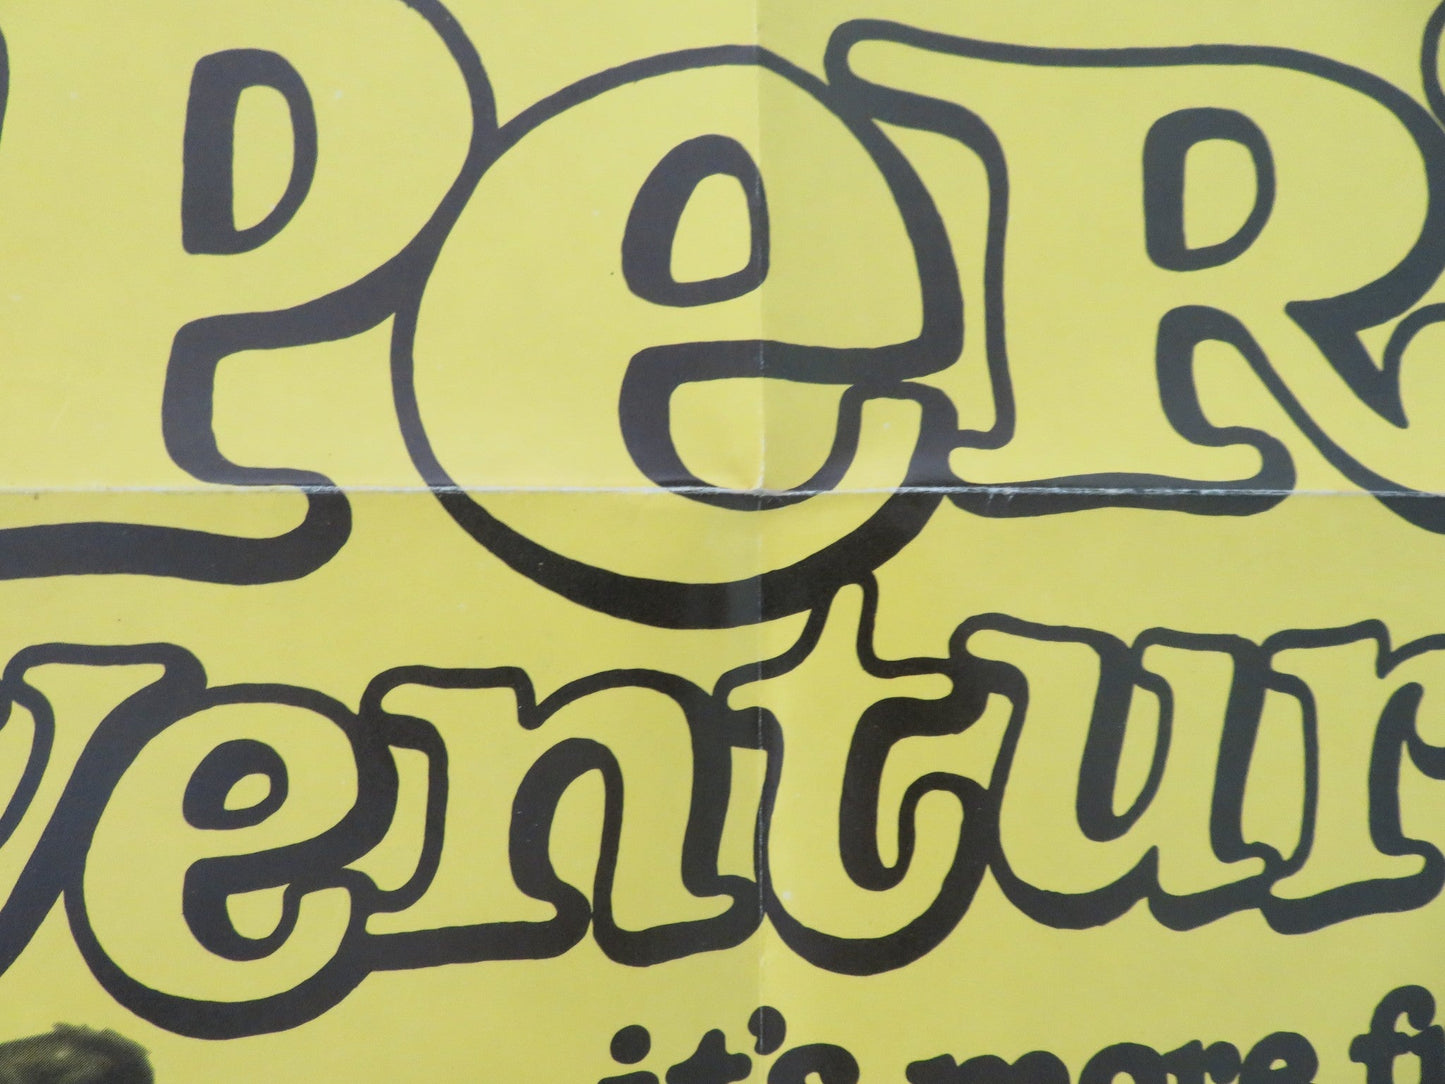 PeR
ventur
it's more fu